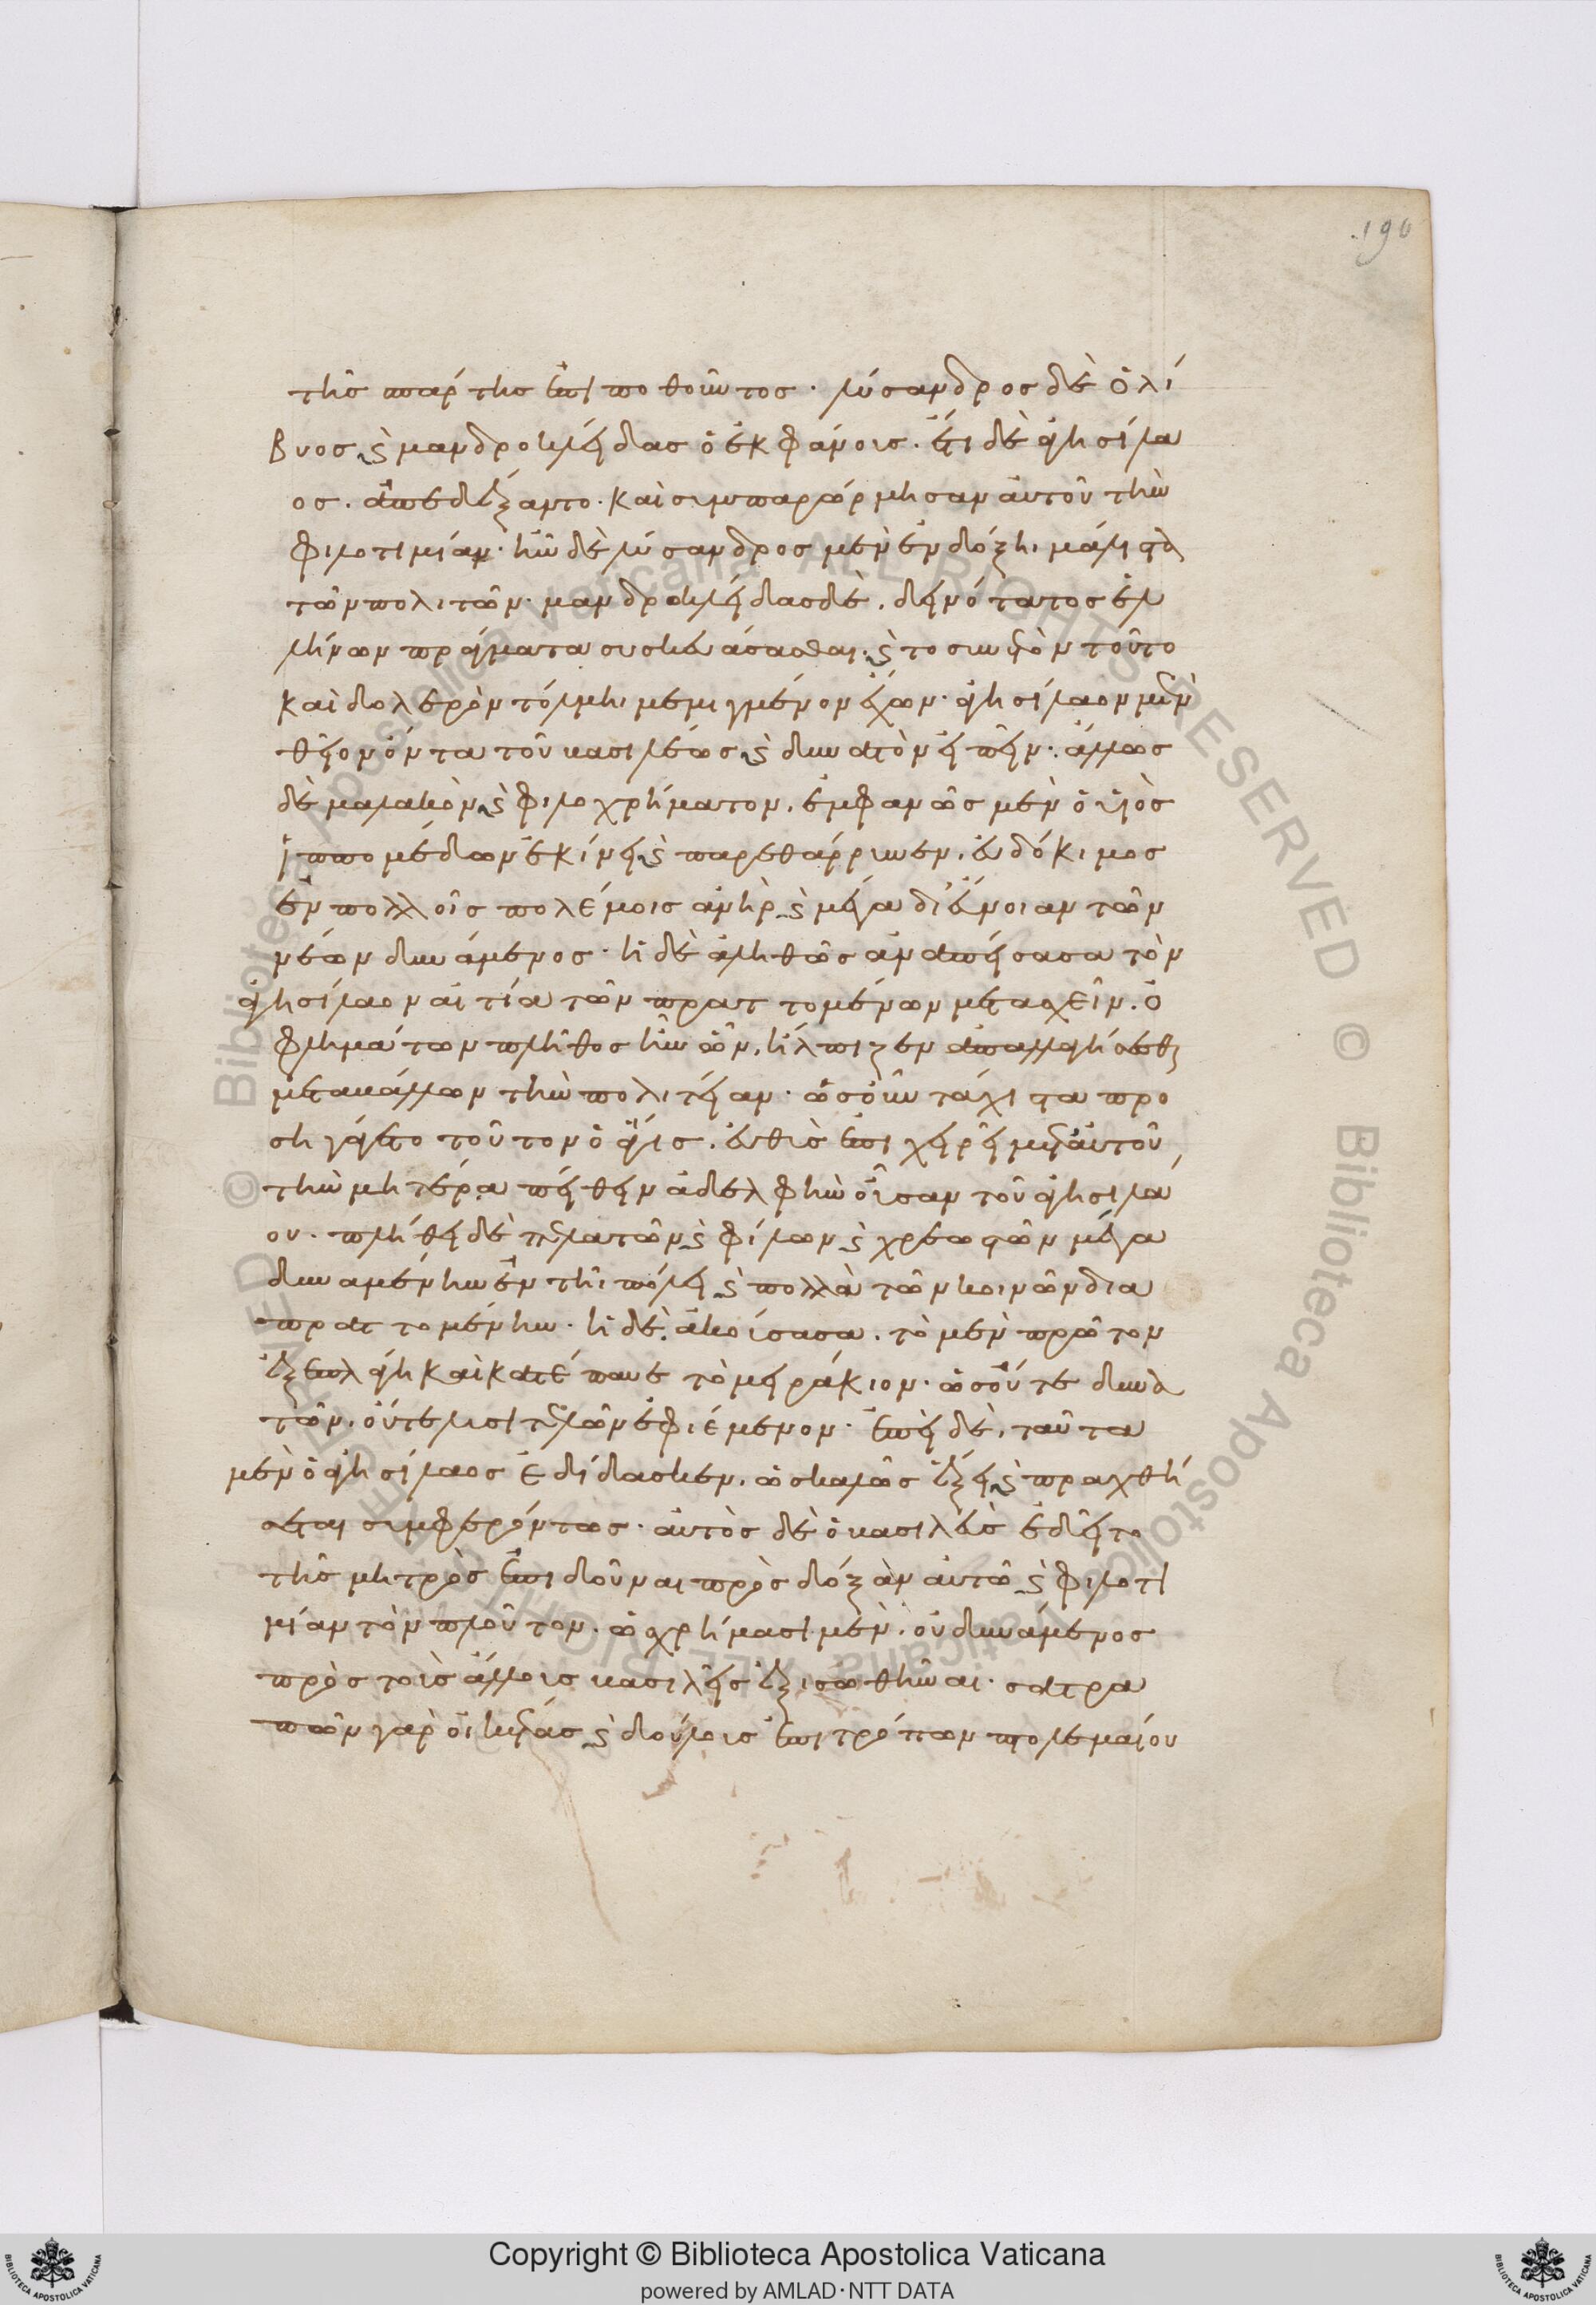 τῆς σπάρτης ἐπιποθοῦντος· λύσανδρος δὲ ὁ λί
βυος καὶ μανδροκλείδας ὁ ἐκφάνους. ἔτι δὲ ἀγησίλα
ος. ἀπεδέξαντο. καὶ συμπαρώρμησαν αὐτοῦ τὴν
φιλοτιμίαν· ἦν δὲ λύσανδρος μὲν ἐν δόξηι μάλιστα
τῶν πολιτῶν· μανδροκλείδας δὲ. δεινότατος ἑλ
λήνων πράγματα συσκευάσασθαι. καὶ τὸ συνετὸν τοῦτο
καὶ δολερὸν τόλμηι μεμιγμένον ἔχων· ἀγησίλαον μὲν
θεῖον ὄντα τοῦ βασιλέως καὶ δυνατὸν εἰπεῖν. ἄλλως
δὲ μαλακὸν καὶ φιλοχρήματον. ἐμφανῶς μὲν ὁ υἱὸς
ἱππομέδων ἐκίνει καὶ παρεθάρρυνεν. εὐδόκιμος
ἐν πολλοῖς πολέμοις ἀνὴρ καὶ μέγα δι' εὔνοιαν τῶν
νέων δυνάμενος· ἡ δὲ ἀληθῶς ἀναπείσασα τὸν
ἀγησίλαον αἰτία τῶν πραττομένων μετασχεῖν. ὀ
φλημάτων πλῆθος ἦν ὧν. ἤλπιζεν ἀπαλλαγήσεσθαι
μεταβάλλων τὴν πολιτείαν· ὡς οὖν τάχιστα προ
σηγάγετο τοῦτον ὁ ἄγις. εὐθὺς ἐπιχειρεῖ μετ' αὐτοῦ
τὴν μητέρα πείθειν ἀδελφὴν οὖσαν τοῦ ἀγησιλά
ου· πλήθει δὲ πελατῶν καὶ φίλων καὶ χρεωστῶν μέγα
δυναμένην ἐν τῆι πόλει καὶ πολλὰ τῶν κοινῶν δια
πραττομένην· ἡ δὲ ἀκούσασα. τὸ μὲν πρῶτον
ἐξεπλάγη καὶ κατέπαυε τὸ μειράκιον· ὡς οὔτε δυνα
τῶν. οὔτε λυσιτελῶν ἐφιέμενον· ἐπεὶ δὲ. ταῦτα
μὲν ὁ ἀγησίλαος ἐδίδασκεν. ὡς καλῶς ἕξει καὶ πραχθή
σεται συμφερόντως· αὐτὸς δὲ ὁ βασιλεὺς ἐδεῖτο
τῆς μητρὸς ἐπιδοῦναι πρὸς δόξαν αὐτῶ καὶ φιλοτι
μίαν τὸν πλοῦτον. ὡς χρήμασι μὲν. οὐ δυνάμενος
πρὸς τοὺς ἄλλους βασιλεῖς ἐξισωθῆναι· σατρα
πῶν γὰρ οἰκέτας καὶ δούλους ἐπιτρόπων πτολεμαίου
190
Copyright © Biblioteca Apostolica Vaticana
powered by AMLAD·NTT DATA